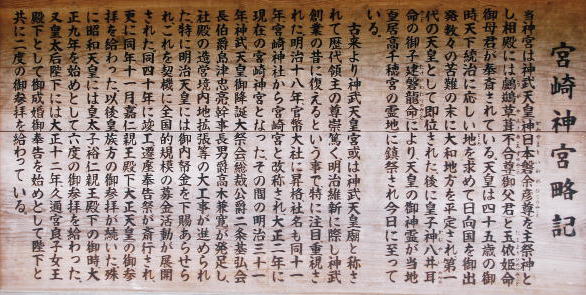 宮崎神宮略記
当神宮は神武天皇神日本磐余彦尊を主祭神と
し相殿には鵜鶿草葺不合尊御父君と玉依姫命
御母君が奉斎されている。天皇は四十五歳の御
時天下統治に応しい地を求めて日向国を御出
発数々の苦難の末に大和地方を平定され第一
代の天皇として即位された後に皇子神八井耳
命の御子建磐龍命により天皇の御神霊が当地
皇居高千穂宮の霊地に鎮祭され今日に至って
いる。
古来より神武天皇宮或は神武天皇廟と称さ
れて歴代領主の尊崇篤く明治維新に際し神武
創業の昔に復えるという事で特に注目重視さ
れた明治十八年官幣大社に昇格社名も同十一
年宮崎神社から宮崎宮と改称され大正二年に
現在の宮崎神宮となったその間の明治三十一
年神武天皇御降誕大祭会総裁公爵二条基弘会
長伯爵島津忠亮幹事長男爵高木兼寛が発足し
社殿の造営境内地拡張等の大工事が進められ
た特に明治天皇には御内帑金を下賜あらせら
れこれを契機に全国的規模の募金活動が展開
された同四十年に竣工遷座奉告祭が斎行され
更に同年十一月嘉仁親王殿下大正天皇の御参
拝を給わった以後皇族方の御参拝が続いた殊
に昭和天皇には皇太子裕仁親王殿下の御時大
正九年を始めとして六度の御参拝を給わった、
又皇太后陛下には大正十二年久邇宮良子女王
殿下として御成婚御奉告を始めとして陛下と
共に二度の御参拝を給わっている。